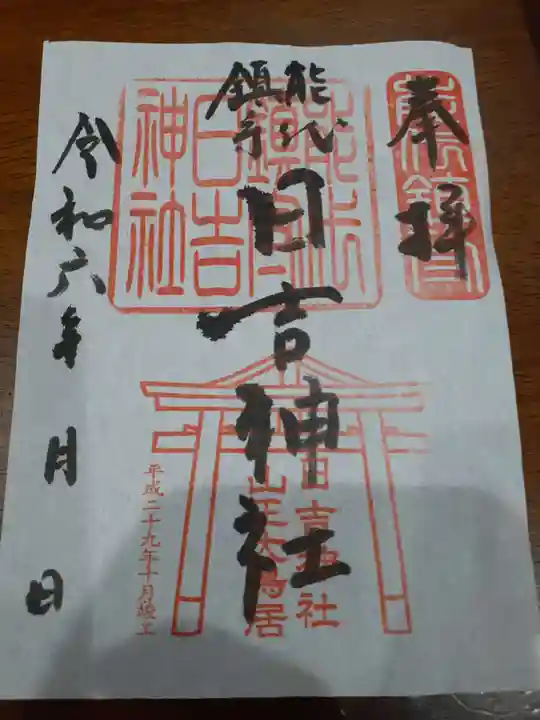 奉拝
能代
鎮守
日吉神社
能代
鎮守
日吉
神社
日吉神社
山王大鳥居
平成二十九年十月竣工
令和六年 月 日